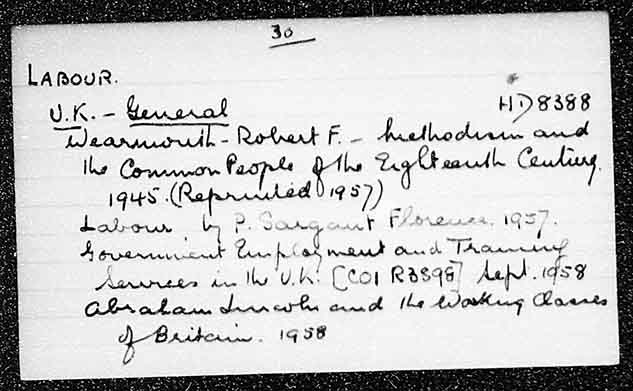 30
LABOUR.
U.K. - General HD8388
Wearmouth - Robert F. - Methodism and
the Common People of the Eighteenth Century.
1945. (Reprinted 1957)
Labour by P. Sargant Florence. 1957.
Government Employment and Training
Services in the U.K. [COI R3898] Sept. 1958
Abraham Lincoln and the Working Classes
of Britain. 1958